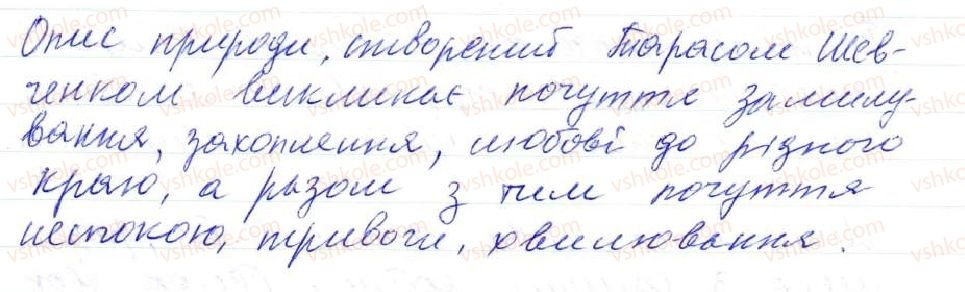 Опис природи, створений Тарасом Шев-
ченком викликає почуття замилу-
вання, захоплення, любові до рідного
краю, а разом з тим почуття
неспокою, тривоги, хвилювання.